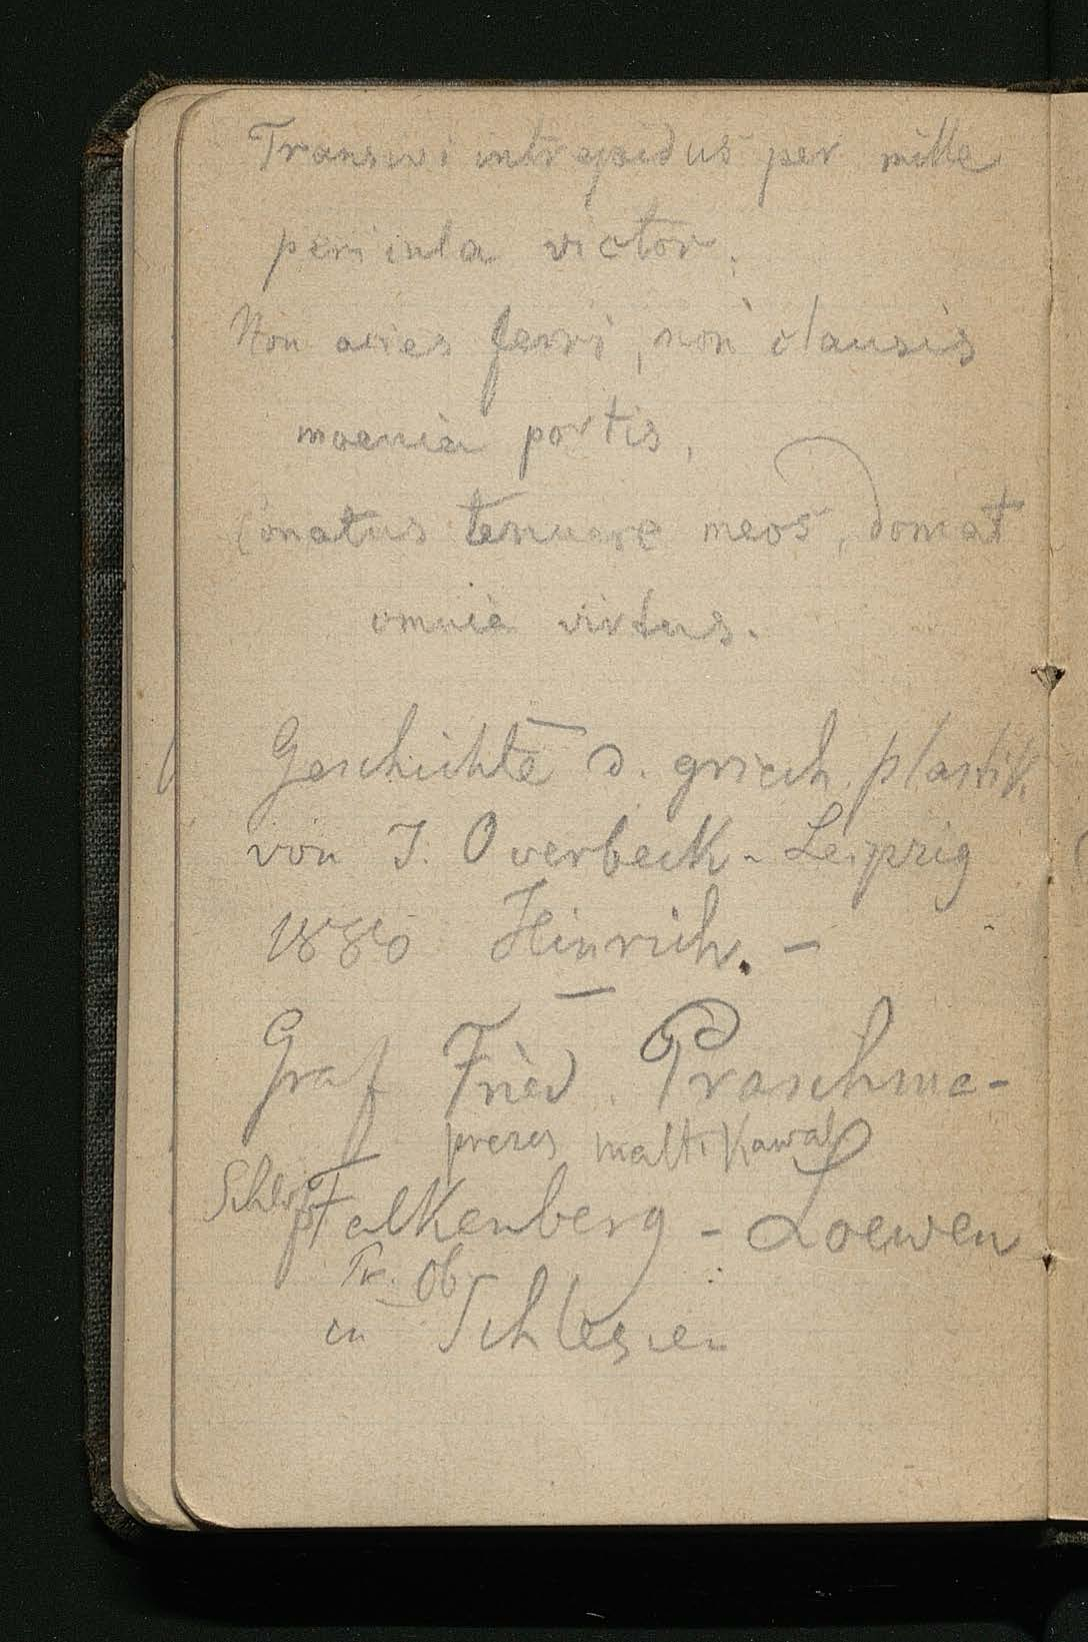 Transivi intrepidus per mille
pericula victor.
Non acies ferri, non clausis
moenia portis,
Conatus tenuere meos, domat
omnia virtus.
Geschichte d. griech. plastik
von J. Overbeck - Leipzig
1880 Hinrich. -
Graf Fried. Praschma -
prezes malt. Kawal
Schloß Falkenberg - Loewen
Pr. Ob
in Schlesien